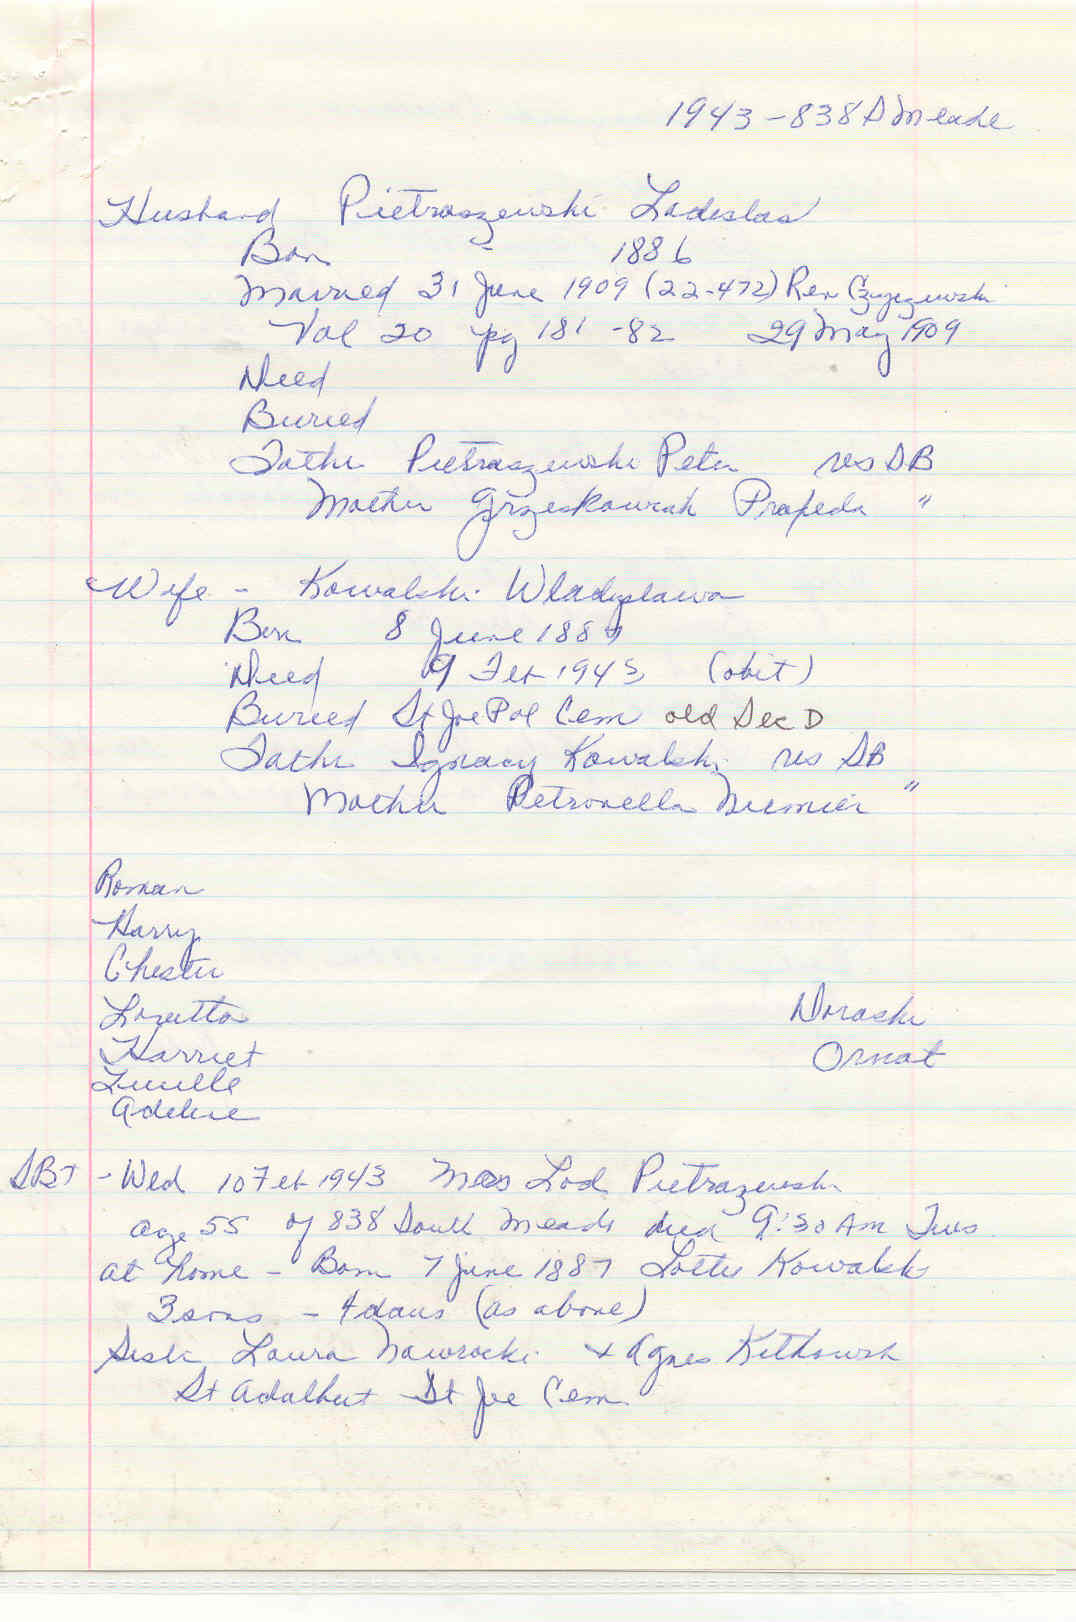 1943-838 S Meade
Husband Pietraszewski Ladislas
Born 1886
Married 31 June 1909 (22-472) Rev Czyzewski
Vol 20 pg 181-82 29 May 1909
Died
Buried
Father Pietraszewski Peter res SB
Mother Grzeskowiak Praxeda "
Wife - Kowalski Wladyslawa
Born 8 June 1887
Died 9 Feb 1943 (obit)
Buried St Joe Pol Cem old Sec D
Father Ignacy Kowalski res SB
Mother Petronella Niemier "
Roman
Harry
Chester
Loretta Noraski
Harriet Ornat
Lucille
Adeline
SBT - Wed 10 Feb 1943 Mrs Lod Pietrazewski
age 55 of 838 South Meade died 9:30 AM Tues
at home - Born 7 June 1887 Lottie Kowalski
3 sons - 4 daus (as above)
Sists Laura Nawrocki + Agnes
St Adalbert St Joe Cem